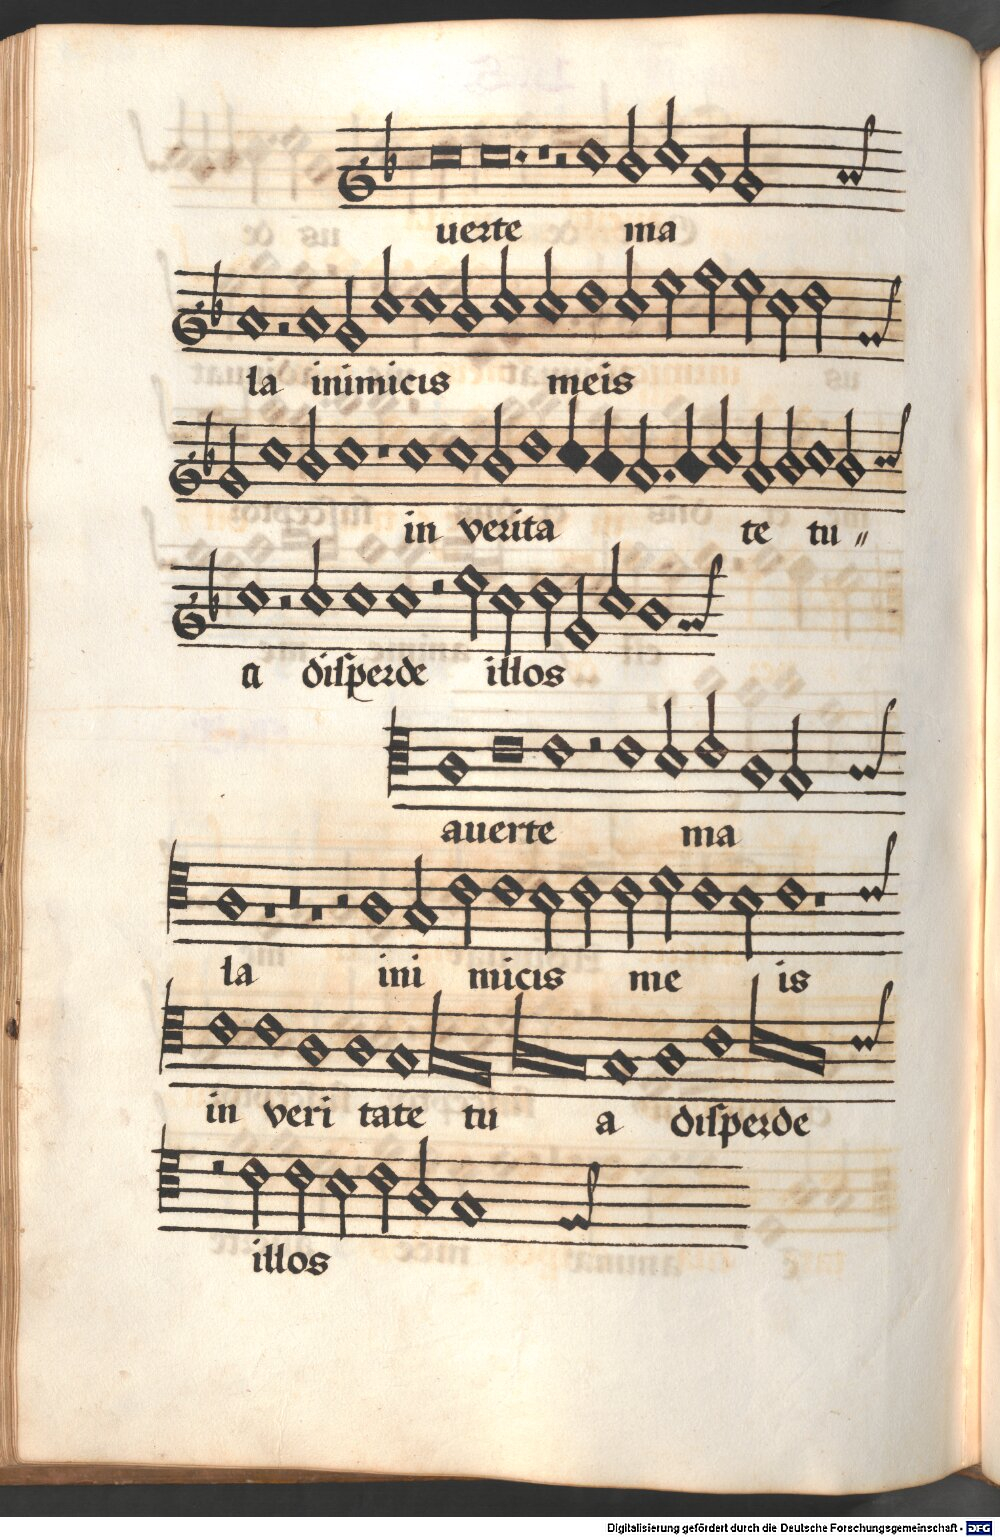 uerte ma
la inimicis meis
in verita te tu〃
a disperde illos
auerte ma
la ini micis me is
in veri tate tu a disperde
illos
Digitalisierung gefördert durch die Deutsche Forschungsgemeinschaft - DFG